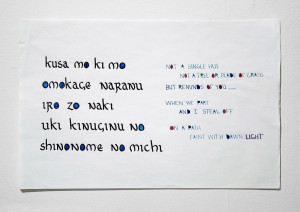 kusa mo ki mo
omokage naranu
iro zo naki
uki kinuginu no
shinonome no michi
NOT A SINGLE
NOT A TREE OR BLADE OF GRASS
BUT REMINDS OF YOU
WHEN WE PART
AND I STEAL OFF
ON A PATH
FAINT WITH DAWN LIGHT